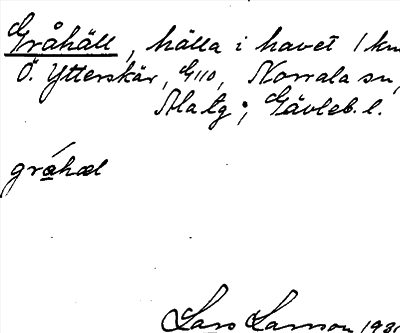 Gråhäll, hälla i havet 1 km
Ö. Ytterskär, G110, Norrala sn,
Ala tg; Gävleb. l.
gráhæl
Lars Larsson 193